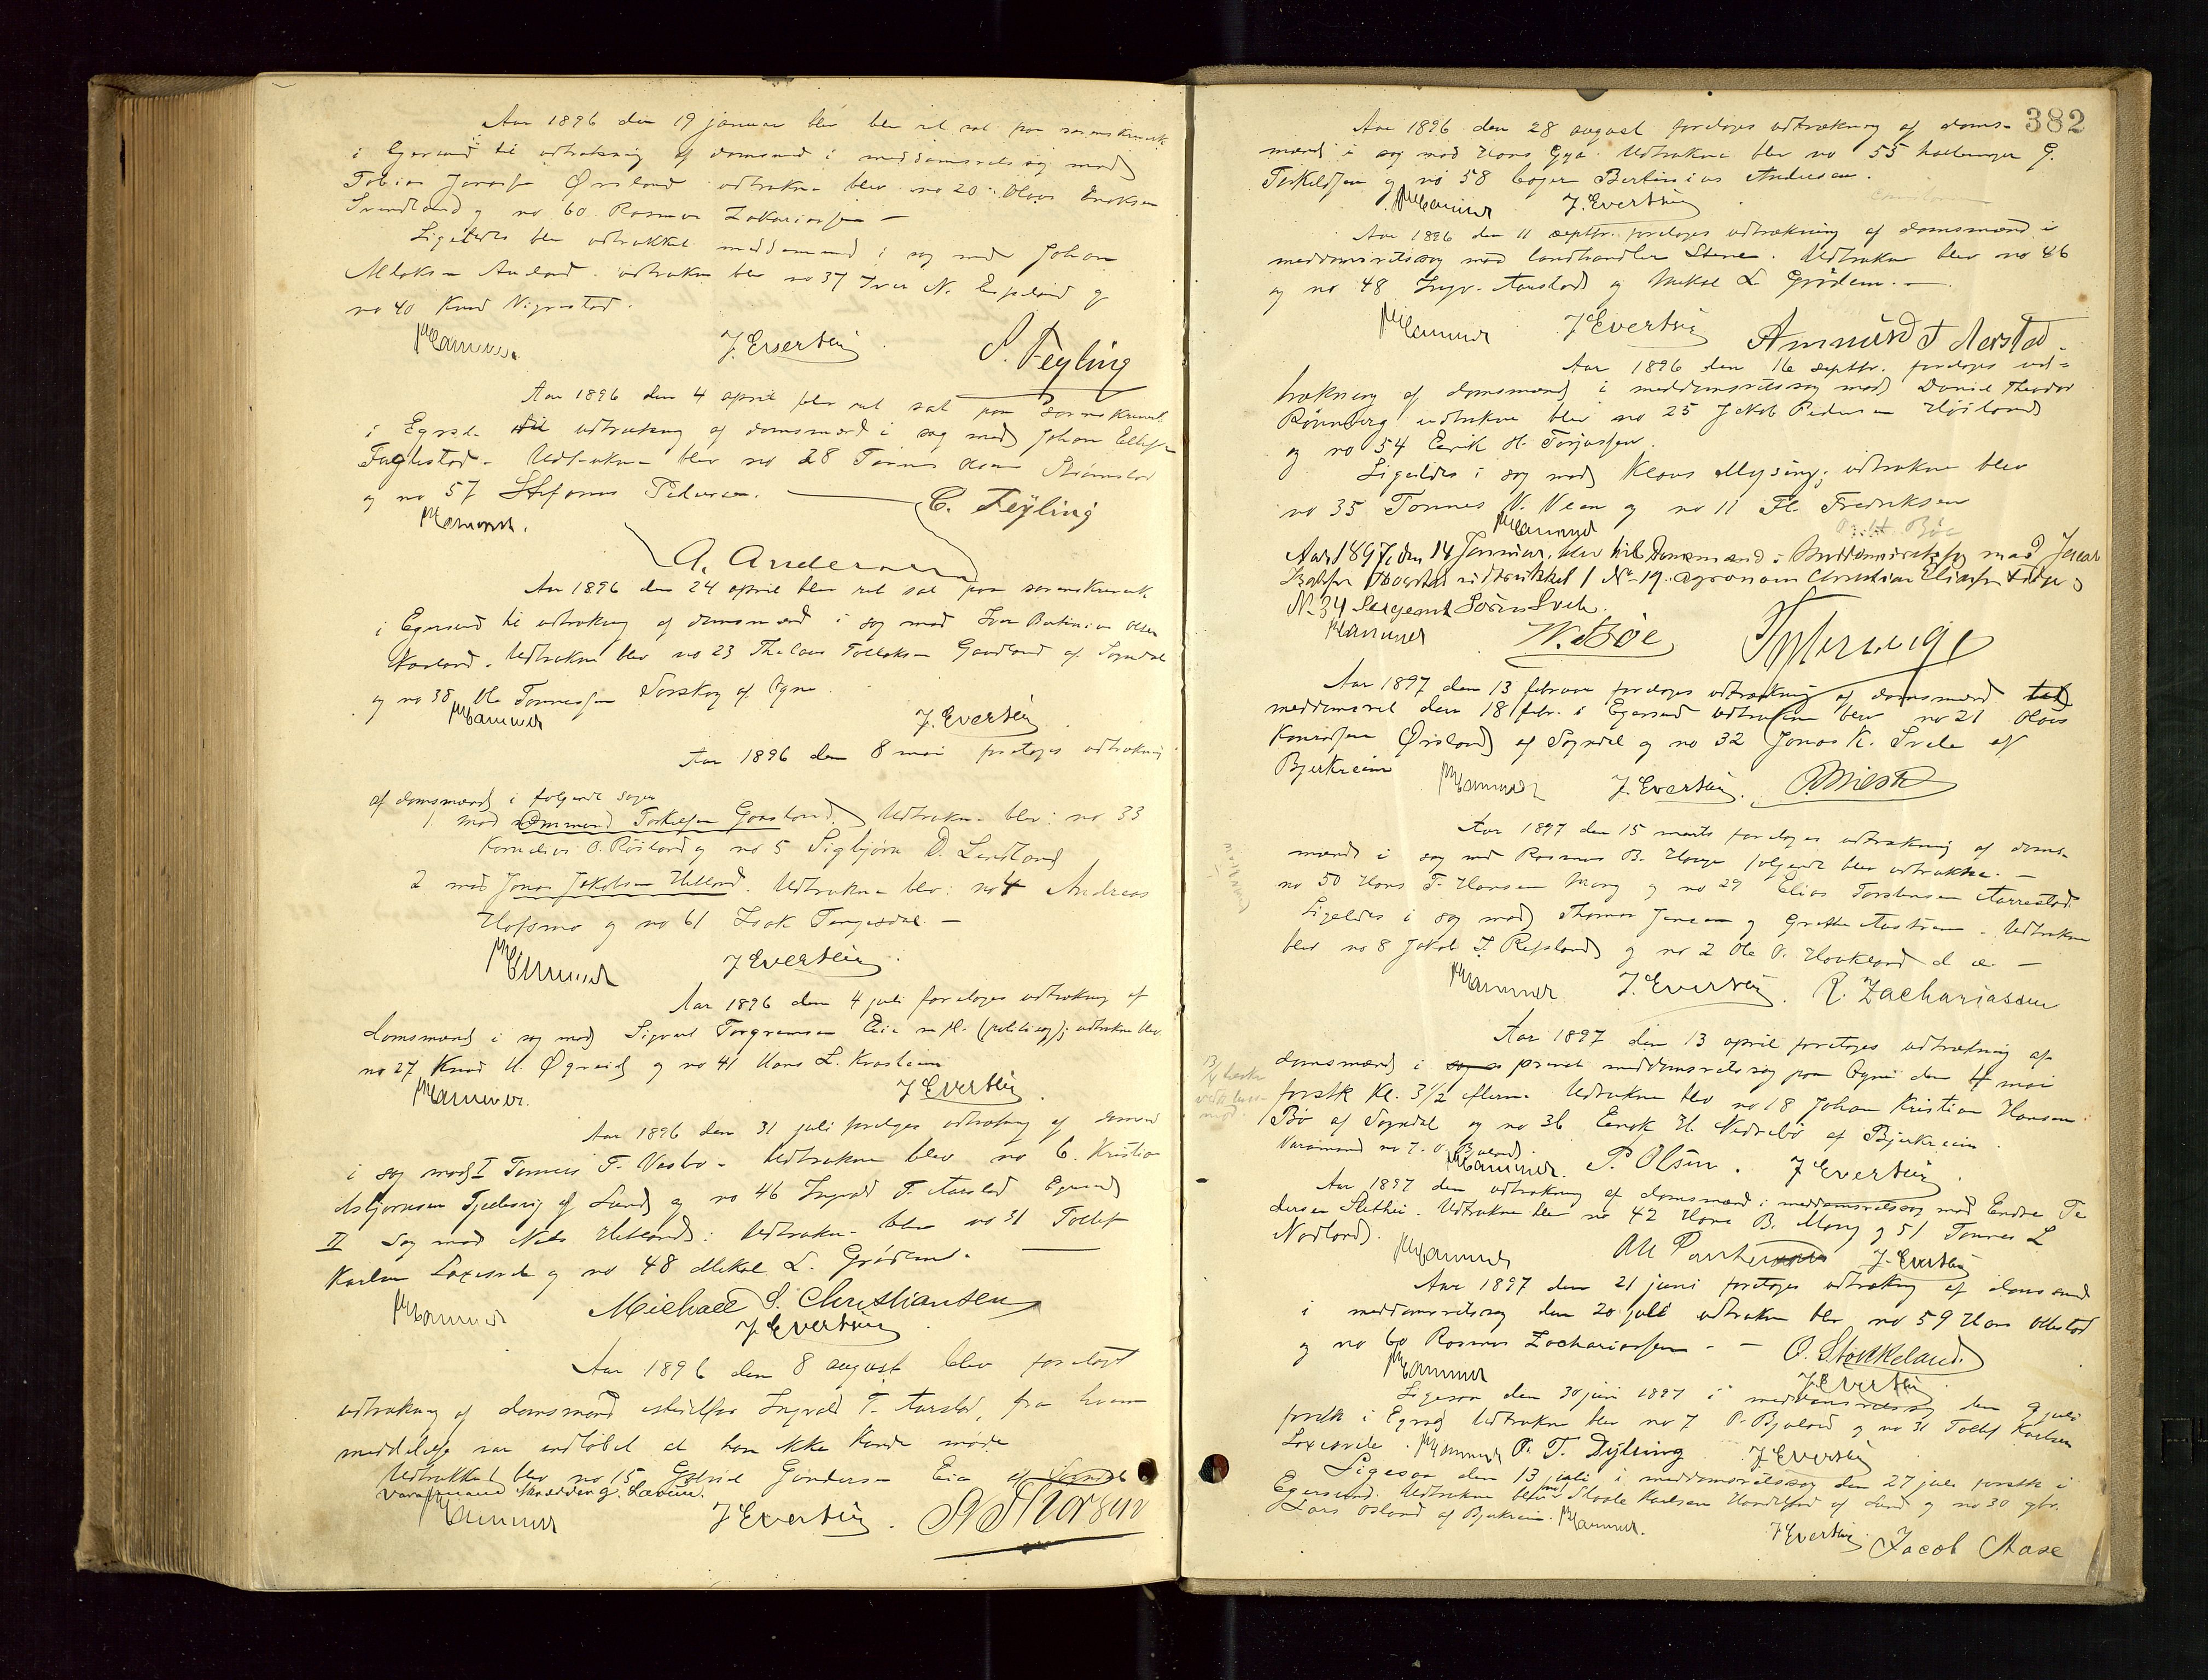 Aar 1896 den 19 januar blev ret sat paa sorenskriverk.
i Egersund til udtrækning af domsmænd i meddomsretssag mod
Tobias Jonassen Ørsland udtrukne blev no 20 Olaus Enoksen
Svindland og no 60 Rasmus Zakariassen —
Ligeledes blev udtrukket meddomsmænd i sag mod Johan
Aslaksen Aaland. udtrukne blev no 37 Iver N. Espeland og
no 40 Knud Vigrestad.
Hammer J. Evertsen S. Feyling
Aar 1896 den 4 april blev ret sat paa Sorenskriverk.
i Egrsd. til udtrækning af domsmænd i sag mod Johan Ellefsen
Fuglestad. Udtrukne blev no 28 Tønnes
og no 57 Stefanus Pedersen. — C. Feyling
Hammer.
A. Andersen
Aar 1896 den 24 april blev ret sat paa sorenskriverk.
i Egersund til udtrækning af domsmænd i sag mod Bertinius Olsen
Udtrukne blev no 23 Tollaksen Gaudland af Sogndal
og no 38 Ole Tønnessen Torskog af Ogne.
Hammer J. Evertsen
Aar 1896 den 8 mai foretoges udtrækning
af domsmænd i følgende sager
1. mod Ommund Torkelsen Gaasland. Udtrukne blev: no 33
Kornelius O. Røisland og no 5 Sigbjørn D. Lindland
2 mod Jonas Jakobsen Helland. Udtrukne blev: no 4 Andreas
Hofsmo og no 61 Isak Tengesdal —
Hammer J Evertsen.
Aar 1896 den 4 juli foretoges udtrækning af
domsmænd i sag mod Sigvart Torgrimsen Eie m. fl. (politisag); udtrukne blev
no 27 Knud H. Øgreid og no 41 Hans L.
Hammer. J Evertsen.
Aar 1896 den 31 juli foretoges udtrækning af domsmænd
i sag mod I Tønnes T. Vasbø. Udtrukne blev no 6. Kristian
Asbjørnsen Tjellesvig af Lund og no 46 Ingvald T. Aarstad Egersund
II Sag mod Nils Helland: Udtrukne blev no 31 Tollef
Karlsen Laxesvele og no 48 Mikal L. Grødem. —
Hammer Michael S. Christiansen
J Evertsen
Aar 1896 den 8 august blev foretaget
udtrækning af domsmænd istedetfor Ingvald T. Aarstad, fra hvem
meddelelse var indløbet at han ikke kunde møde
Udtrukket blev no 15 Gabriel Gundersen Eie af Sogndal
varamand
Hammer J Evertsen. A Thorsen
382
Aar 1896 den 28 august foretoges udtrækning af doms-
mænd i sag mod Hans Gya. Udtrukne blev no 55 G.
Torkildsen og no 58 bager Bertinius Andersen.
Hammer J. Evertsen
Aar 1896 den 11 septbr. foretoges udtrækning af domsmænd i
meddomsretssag mod landhandler Stene. Udtrukne blev no 46
og no 48 Ingv. Aarstad og Mikal L. Grødem. —
Hammer J Evertsen Ammund T Aarstad
Aar 1896 den 16 septbr. foretoges ud-
trækning af domsmænd i meddomsretssag mod Daniel Theodor
Rønneberg udtrukne blev no 25 Jakob Pedersen Høiland
og no 54 Eirik H. Torjussen.
Ligeledes i sag mod Klaus Mysing; udtrukne blev
no 35 Tønnes V. Veen og no 11 Fl. Fredriksen
Hammer Bøe
Aar 1897, den 14 Januar, blev til Domsmænd i Meddomsretssag mod
udtrukket No 19. agronom Christian Eliassen og
No 34 Sergeant Sören Svele.
Hammer W. Böe
Aar 1897 den 13 februar foretoges udtrækning af domsmænd til
meddomsret den 18 febr. i Egersund udtrukne blev no 21 Olaus
Konradsen Ørsland af Sogndal og no 32 Jonas K. Svele af
Bjerkreim
Hammer J. Evertsen.
Aar 1897 den 15 marts foretoges udtrækning af doms-
mænd i sag mod Rasmus B. Hauge følgende blev udtrukne. —
no 50 Hans T. Hansen Mong og no 29 Elias Torstensen Aarrestad.
Ligeledes i sag mod Thomas Jensen og Grethe Austrem. Udtrukne
blev no 8 Jakob T. Refsland og no 2 Ole O. Haukland d. æ. —
Hammer J. Evertsen. R. Zachariassen
Aar 1897 den 13 april foretoges udtrækning af
domsmænd i privat meddomsretssag paa Ogne den 4 mai
førstk Kl. 3½ efterm. Udtrukne blev no 18 Johan Kristian Hansen
Bø af Sogndal og no 36 Enok H. Nedrebø af Bjerkreim
Varamand no 7. O. Bjuland.
Hammer. P. Olsen. J Evertsen.
Aar 1897 den udtrækning af domsmænd i meddomsretssag mod Endre Te
dersen Slethei. Udtrukne blev no 42 Hans B. Mong og 51 Tønnes L
Nodland.
Hammer J. Evertsen
Aar 1897 den 21 juni foretoges udtrækning af domsmænd
i meddomsretssag den 20 juli udtrukne blev no 59 Hans Ollestad
og no 60 Rasmus Zachariassen. — O. Stokkeland.
Hammer J Evertsen
Ligesaa den 30 juni 1897 i meddomsretssag den 9 juli
førstk i Egrsd Udtrukne blev no 7 O. Bjuland og no 31 Tollef Karlsen
Laxesvele. Hammer P. T. Dybing J Evertsen
Ligesaa den 13 juli i meddomsretssag den 27 juli førstk i
Egersund. Udtrukne blev Karlsen af Lund og no 30 gbr.
Lars Osland af Bjerkreim. Hammer.
J Evertsen Jacob Aase